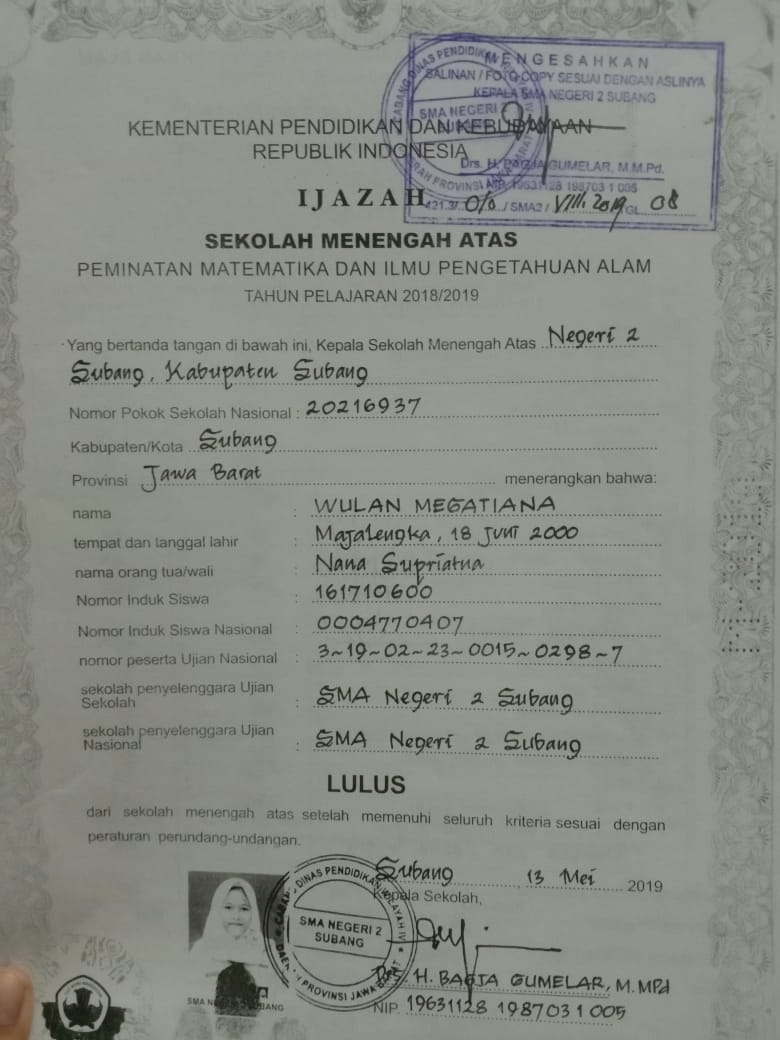 MENGESAHKAN
SALINAN / FOTO COPY SESUAI DENGAN ASLINYA
KEPALA SMA NEGERI 2 SUBANG
Drs. H. BAGJA GUMELAR, M.M.Pd.
NIP. 19631128 198703 1 005
421.3/ 010 / SMA2 / VIII. 2019 GL. 08
SMA NEGERI 2
KEMENTERIAN PENDIDIKAN DAN KEBUDAYAAN
REPUBLIK INDONESIA
IJAZAH
SEKOLAH MENENGAH ATAS
PEMINATAN MATEMATIKA DAN ILMU PENGETAHUAN ALAM
TAHUN PELAJARAN 2018/2019
Yang bertanda tangan di bawah ini, Kepala Sekolah Menengah Atas Negeri 2
Subang, Kabupaten Subang
Nomor Pokok Sekolah Nasional : 20216937
Kabupaten/Kota Subang
Provinsi Jawa Barat menerangkan bahwa:
nama : WULAN MEGATIANA
tempat dan tanggal lahir : Majalengka, 18 Juni 2000
nama orang tua/wali : Nana Supriatna
Nomor Induk Siswa : 161710600
Nomor Induk Siswa Nasional : 0004770407
nomor peserta Ujian Nasional : 3-19-02-23-0015-0298-7
sekolah penyelenggara Ujian
Sekolah : SMA Negeri 2 Subang
sekolah penyelenggara Ujian
Nasional : SMA Negeri 2 Subang
LULUS
dari sekolah menengah atas setelah memenuhi seluruh kriteria sesuai dengan
peraturan perundang-undangan.
Subang, 13 Mei 2019
Kepala Sekolah,
CABANG DINAS PENDIDIKAN WILAYAH IV
SMA NEGERI 2
SUBANG
DAERAH PROVINSI JAWA BARAT
Drs. H. BAGJA GUMELAR, M.MPd
NIP. 19631128 198703 1 005